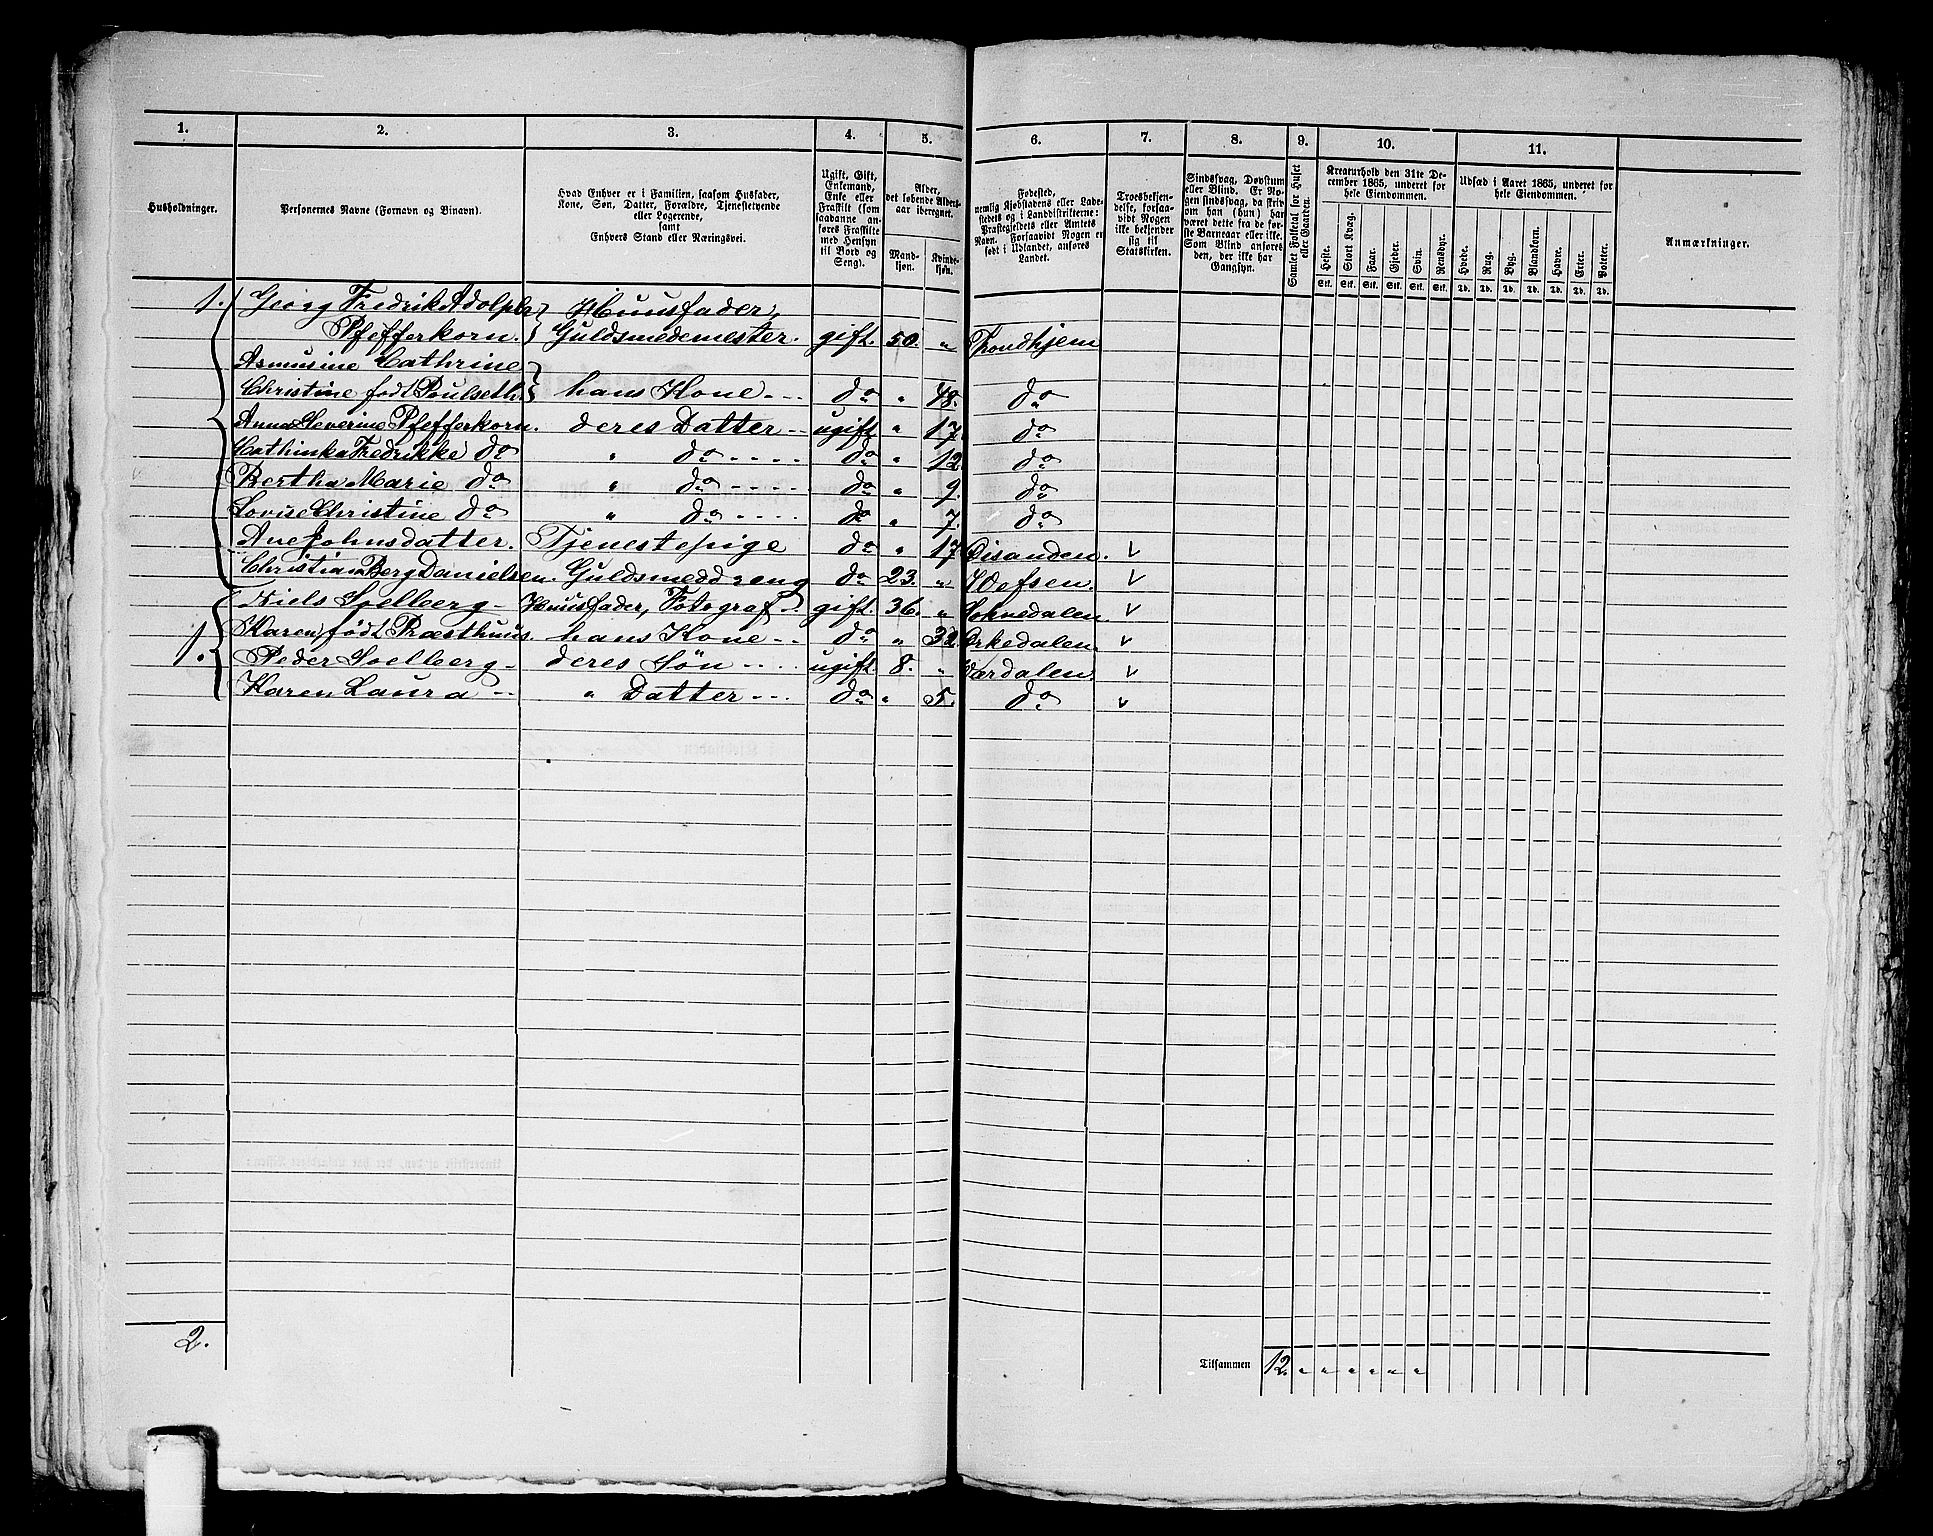 1. 2. 3. 4. 5. 6. 7. 8. 9. 10. 11.
Husholdninger.
Personernes Navne (Fornavn og Binavn).
Hvad Enhver er i Familien, saasom Husfader,
Kone, Søn, Datter, Forældre, Tjenestetyende
eller Logerende,
samt
Enhvers Stand eller Næringsvei.
Ugift, Gift,
Enkemand,
Enke eller
Fraskilt (som
saadanne an-
føres Fraskilte
med Hensyn
til Bord og
Seng).
Alder,
det løbende Alders-
aar iberegnet.
Mand-
kjøn.
Kvinde-
kjøn.
Fødested,
nemlig Kjøbstadens eller Lade-
stedets og i Landdistrikterne:
Præstegjeldets eller Amtets
Navn. Forsaavidt Nogen er
født i Udlandet, anføres
Landet.
Troesbekjen-
delse, forsaa-
vidt Nogen
ikke bekjender
sig til
Statskirken.
Sindssvag, Døvstum
eller Blind. Er No-
gen sindssvag, da skriv
om han (hun) har
været dette fra de før-
ste Barneaar eller ikke.
Som Blind anføres
den, der ikke har
Gangsyn.
Samlet Folketal for Huset
eller Gaarden.
Kreaturhold den 31te De-
cember 1865, underet for
hele Eiendommen.
Heste. Stort Kvæg. Faar. Gjeder. Svin. Rensdyr.
Stk. Stk. Stk. Stk. Stk. Stk.
Udsæd i Aaret 1865, underet for
hele Eiendommen.
Hvede. Rug. Byg. Blandkorn. Havre. Erter. Poteter.
Td. Td. Td. Td. Td. Td. Td.
Anmærkninger.
1. Georg Fredrik Adolph Huusfader,
Pfefferkorn. Guldsmedemester. gift. 50. " Trondhjem
Asmusine Cathrine
Christine født Poulseth hans Kone do " 48. do
Anna Severine Pfefferkorn. deres Datter ugift " 17. do
Cathinka Fredrikke do " do do " 12. do
Bertha Marie do " do do " 9. do
Lovise Christine do " do do " 7. do
Ane Johnsdatter. Tjenestepige do " 17 Örlandet.
Christian Berg Danielsen. Guldsmeddreng do 23. " Vefsen.
1. Niels Soelberg Huusfader, Fotograf gift. 36. " Soknedalen.
Karen født Præsthuus. hans Kone do " 32. Orkedalen.
Peder Soelberg deres Søn ugift. 8. " Værdalen.
Karen Laura " Datter do " 5. do
2.
Tilsammen 12. " " " " " "